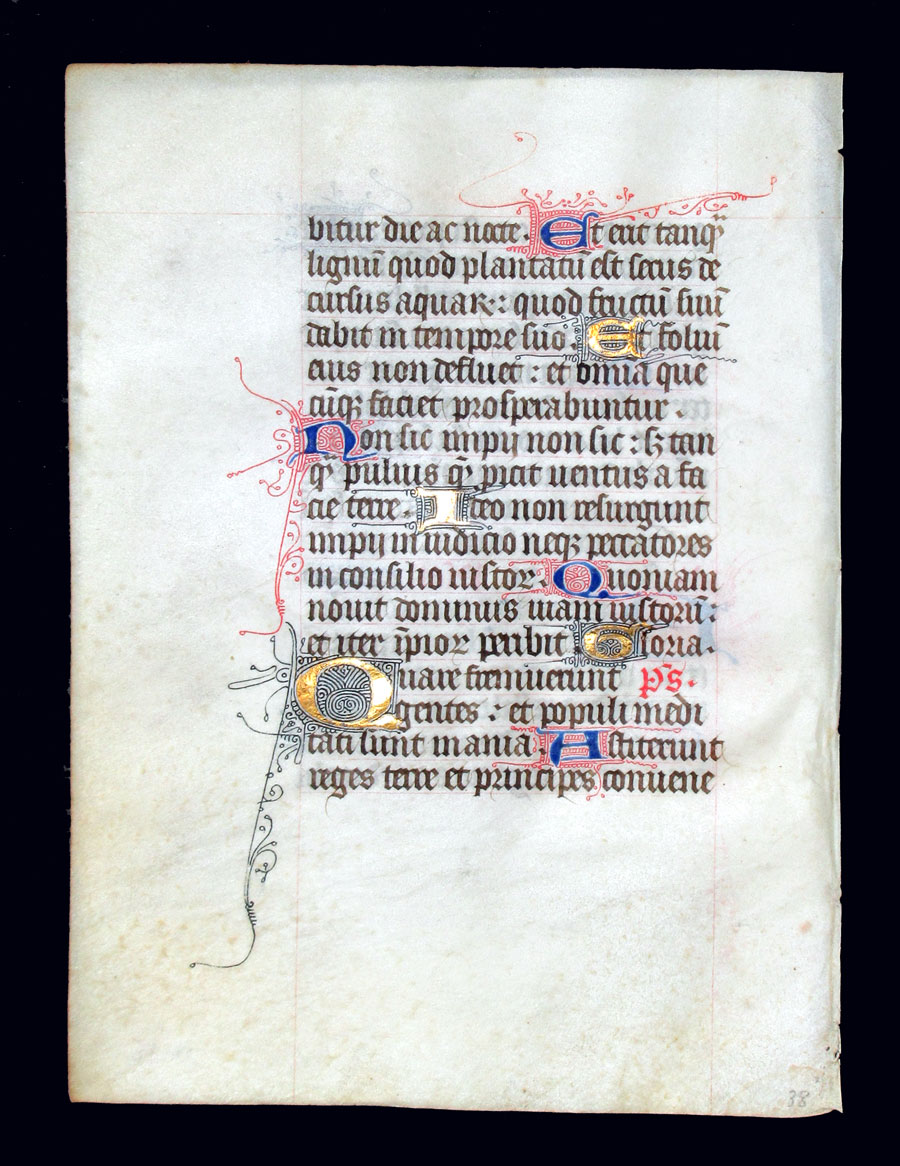 bitur die ac nocte. Et erit tanqꝫ
lignū quod plantatū est secus de
cursus aquaꝝ: quod fructū suū
dabit in tempore suo. Et foliū
eius non defluet: et omnia que
cūqꝫ faciet prosperabuntur.
Non sic impij non sic: sꝫ tan
qꝫ puluis qͣꝫ ꝓicit uentus a fa
cie terre. Ideo non resurgunt
impij in iudicio neqꝫ peccatores
in consilio iustoꝝ. Quoniam
nouit dominus uiam iustorū:
et iter īpioꝝ peribit Gloria.
Quare fremuerunt p̄s.
gentes: et populi medi
tati sunt inania. Astiterunt
reges terre et principes conuene
38